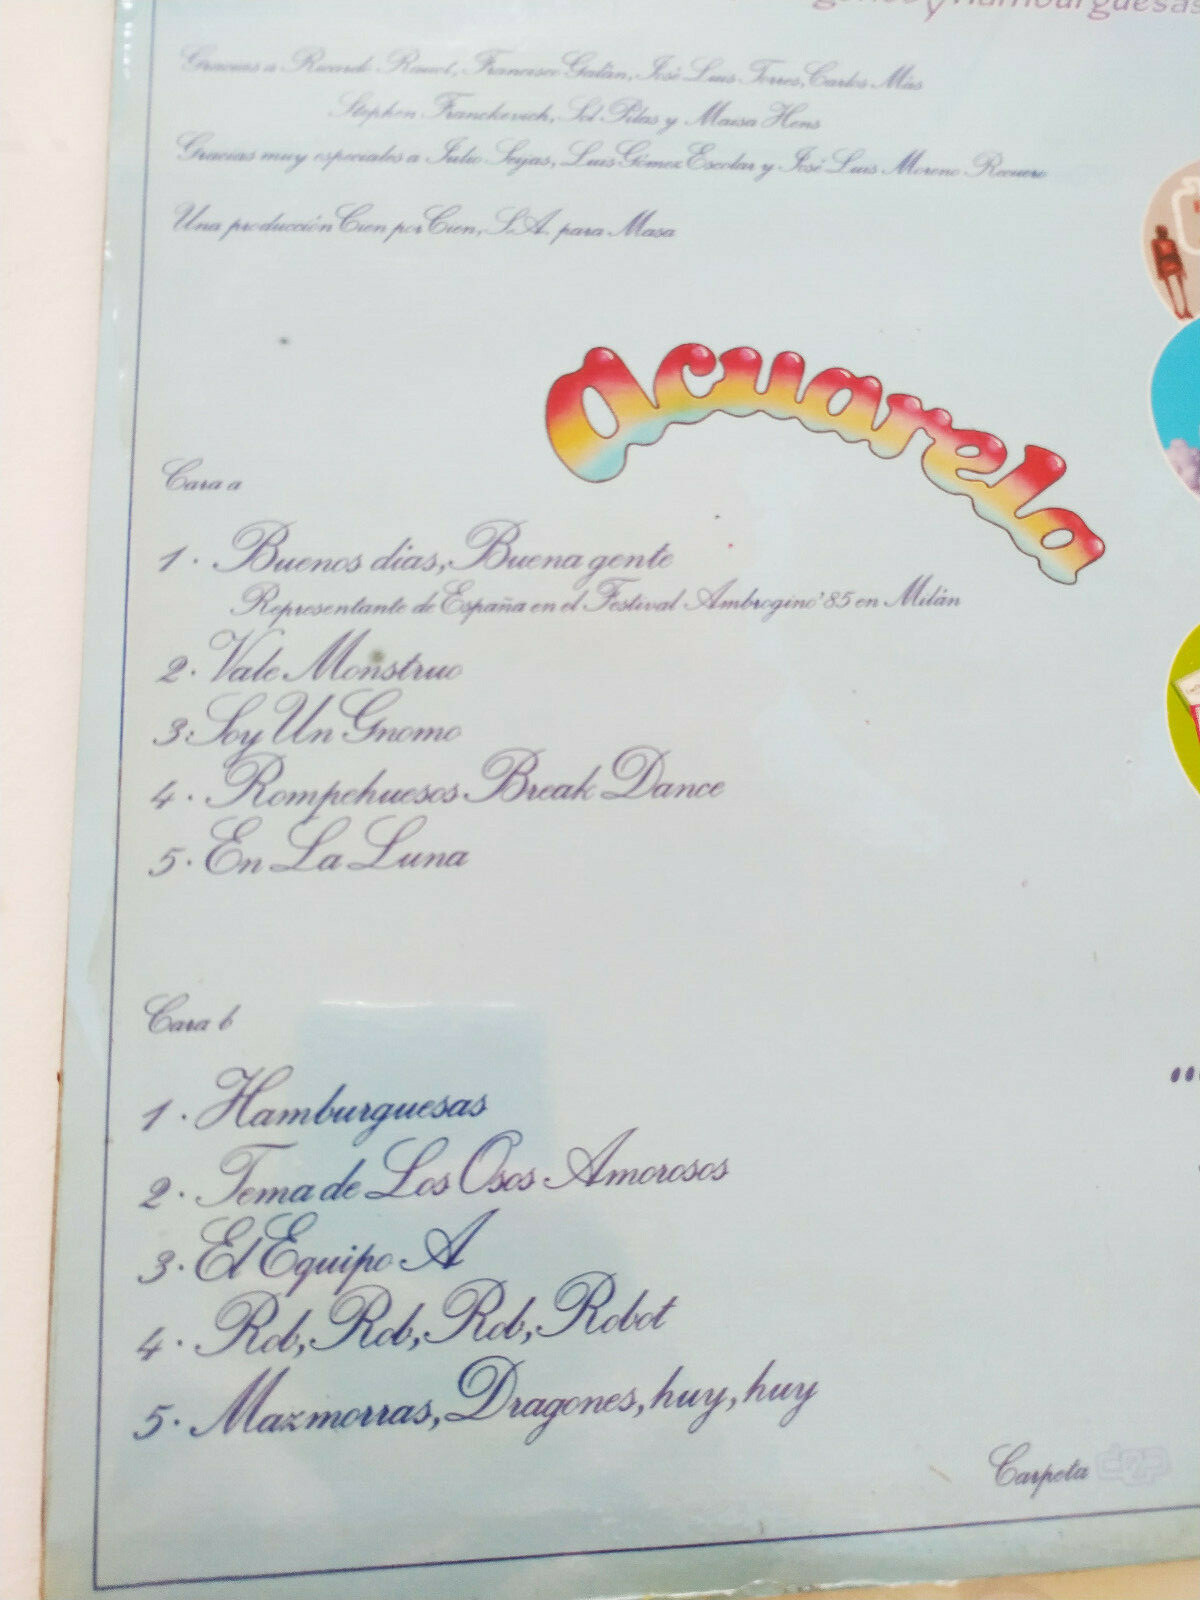 y hamburguesas
Gracias a Ricardo Rauet, Francisco Galán, José Luis Torres, Carlos Más
Stephen Franckevich, Sol Pilas y Maisa Hens
Gracias muy especiales a Julio Seyas, Luis Gómez Escolar y José Luis Moreno Recuero
Una producción Cien por Cien, S.A. para Masa
acuarela
Cara a
1. Buenos dias, Buena gente
Representante de España en el Festival Ambrogino'85 en Milán
2. Vale Monstruo
3. Soy Un Gnomo
4. Rompehuesos Break Dance
5. En La Luna
Cara b
1. Hamburguesas
2. Tema de Los Osos Amorosos
3. El Equipo A
4. Rob, Rob, Rob, Robot
5. Mazmorras, Dragones, huy, huy
Carpeta